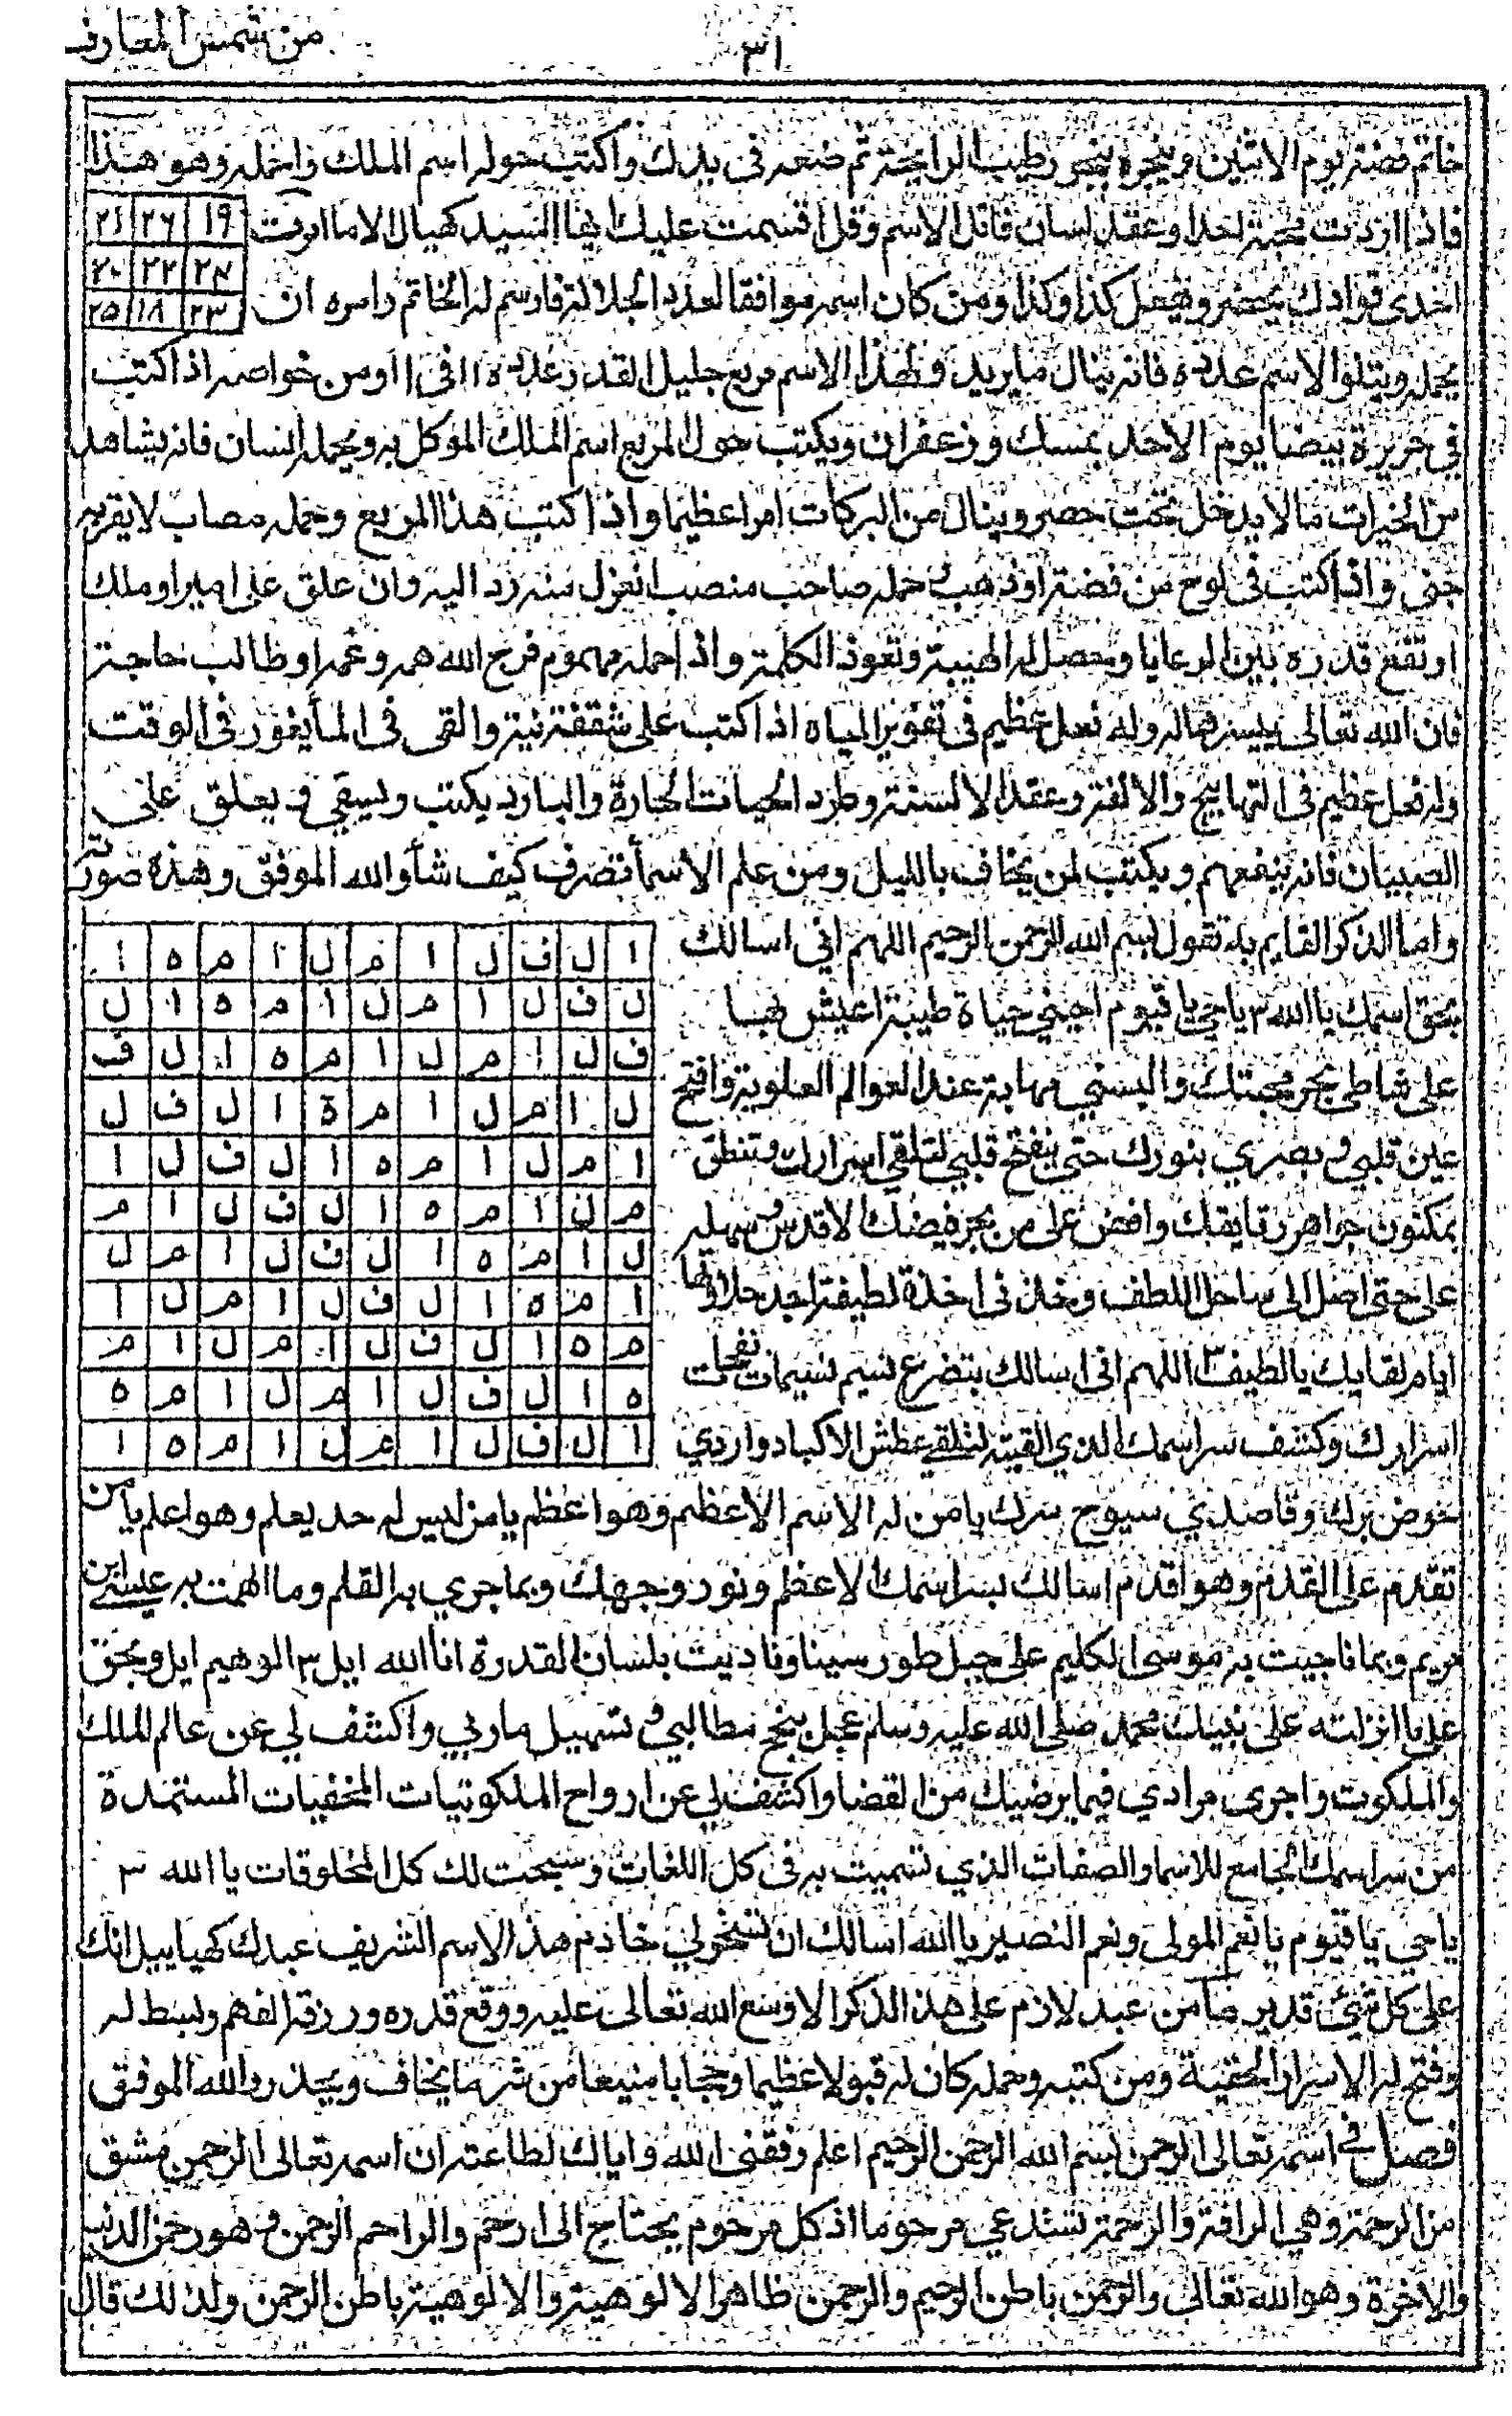 ٣١
من شمس المعارف
خاتم فضة يوم الاثنين وبخره ببخور طيب الرائحة ثم ضعه في يدك واكتب حوله اسم الملك واحمله وهو هذا
فاذا اردت محبة احد او عقد لسان فاتل الاسم وقل اقسمت عليك ايها السيد كهيال الا ما امرت
١٩ ٢٦ ٢١
٢٤ ٢٢ ٢٠
٢٣ ١٨ ٢٥
احدى قوادك يحضر ويفعل كذا وكذا ومن كان اسمه موافقا لعدد الجلالة فارسم له الخاتم وامره ان
يحمله ويتلو الاسم عدده فانه ينال ما يريد ولهذا الاسم مربع جليل القدر عدده ١١ في ١١ ومن خواصه اذا كتب
في حريرة بيضا يوم الاحد بمسك وزعفران ويكتب حول المربع اسم الملك الموكل به ويحمله انسان فانه يشاهد
من الخيرات ما لا يدخل تحت حصر وينال من البركات امرا عظيما واذا كتب هذا المربع وحمله مصاب لا يقربه
جني واذا كتب في لوح من فضة او ذهب حمله صاحب منصب انعزل منه رد اليه وان علق على امير او ملك
ارتفع قدره بين الرعايا وحصل له الهيبة ونعوذ الكلمة واذا حمله مهموم فرج الله همه وغمه او طالب حاجة
فان الله تعالى ييسرها له وله فعل عظيم في تغوير المياه اذا كتب على شقفة نية والقى في المأ يغور في الوقت
وله فعل عظيم في التهابيج والالفة وعقد الالسنة وطرد الحميات الحارة والباردة يكتب ويسقي ويعلق على
الصبيان فانه ينفعهم ويكتب لمن يخاف بالليل ومن علم الاسمأ تصرف كيف شأ والله الموفق وهذه صورته
واما الذكر القايم به تقول بسم الله الرحمن الرحيم اللهم اني اسالك
بحق اسمك يا الله ٣ يا حي يا قيوم احيني حياة طيبة اعيش بها
على شاطي بحر محبتك والبسني مهابة عند العوالم العلوية وافتح
عين قلبي وبصري بنورك حتى ينفتح قلبي لتلقي اسرارك وتنطق
بمكنون جواهر رقايقك وافض على من بحر فيضك الاقدس وسهله
على حتى اصل الى ساحل اللطف وخذني اخذة لطيفة اجد حلاوتها
ايام لقايك يا لطيف ٣ اللهم اني اسالك بتضرع نسيم نسيمات نفحات
اسرارك وكشف سر اسمك الذي القيته لتلقي عطش الاكباد واردي
ا ل ف ل ا م ل ا م ه ا
ل ف ل ا م ل ا م ه ا ل
ف ل ا م ل ا م ه ا ل ف
ل ا م ل ا م ة ا ل ف ل
ا م ل ا م ه ا ل ف ل ا
م ل ا م ه ا ل ف ل ا م
ل ا م ه ا ل ف ل ا م ل
ا م ه ا ل ف ل ا م ل ا
م ه ا ل ف ل ا م ل ا م
ه ا ل ف ل ا م ل ا م ه
ا ل ف ل ا م ل ا م ه ا
حوض برك وقاصدي سيوح سرك يا من له الاسم الاعظم وهو اعظم يا من ليس له حد يعلم وهو اعلم يا من
تقدم على القدم وهو اقدم اسالك بسر اسمك الاعظم ونور وجهك وبما جرى به القلم وما الهمت به عيسى ابن
مريم وبما ناجيت به موسى الكليم على جبل طور سينا وناديت بلسان القدرة انا الله ايل ٣ الوهيم ايل وبحق
على ما انزلته على نبيك محمد صلى الله عليه وسلم عجل بنجح مطالبي وتسهيل ماربي واكشف لي عن عالم الملك
والملكوت واجرى مرادي فيما يرضيك من القضا واكشف لي عن ارواح الملكوتيات المخفيات المستمدة
من سر اسمك الجامع للاسما والصفات الذي تسميت به في كل اللغات وسبحت لك كل المخلوقات يا الله ٣
يا حي يا قيوم يا نعم المولى ونعم النصير يا الله اسالك ان تسخر لي خادم هذا الاسم الشريف عبدك كهياييل انك
على كل شئ قدير ما من عبد لازم على هذا الذكر الا وسع الله تعالى عليه ووقع قدره ورزقه الفهم وبسط له
وفتح له الاسرار الخفية ومن كتبه وحمله كان له قبولا عظيما وحجابا منيعا من شر ما يخاف ويحذر والله الموفق
فصل في اسمه تعالى الرحمن بسم الله الرحمن الرحيم اعلم وفقني الله واياك لطاعته ان اسمه تعالى الرحمن مشتق
من الرحمة وهي الرافة والرحمة تستدعي مرحوما اذ كل مرحوم يحتاج الى ارحم والراحم الرحمن وهو رحمن الدنيا
والاخرة وهو الله تعالى والرحمن باطن الرحيم والرحمن ظاهر الالوهية والالوهية باطن الرحمن ولذلك قال